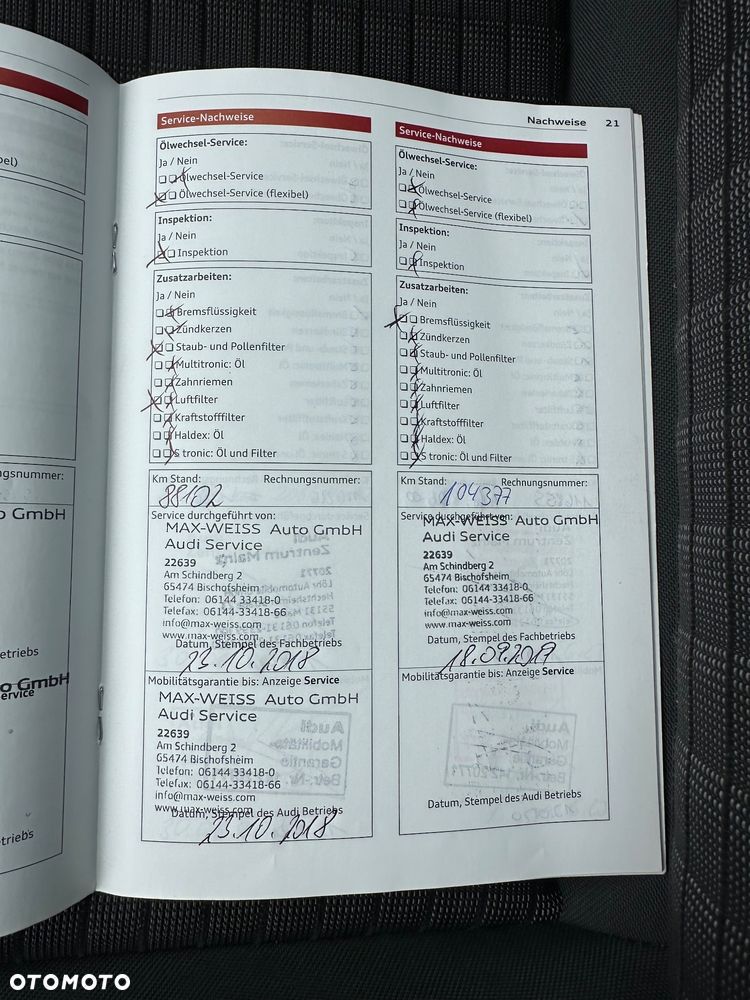 bel)
ngsnummer:
o GmbH
etriebs
o GmbH
ervice
triebs
Nachweise 21
Service-Nachweise
Ölwechsel-Service:
Ja / Nein
Ölwechsel-Service
Ölwechsel-Service (flexibel)
Inspektion:
Ja / Nein
Inspektion
Zusatzarbeiten:
Ja / Nein
Bremsflüssigkeit
Zündkerzen
Staub- und Pollenfilter
Multitronic: Öl
Zahnriemen
Luftfilter
Kraftstofffilter
Haldex: Öl
S tronic: Öl und Filter
Km Stand: Rechnungsnummer:
88102
Service durchgeführt von:
MAX-WEISS Auto GmbH
Audi Service
22639
Am Schindberg 2
65474 Bischofsheim
Telefon: 06144 33418-0
Telefax: 06144-33418-66
info@max-weiss.com
www.max-weiss.com
Datum, Stempel des Fachbetriebs
23.10.2018
Mobilitätsgarantie bis: Anzeige Service
MAX-WEISS Auto GmbH
Audi Service
22639
Am Schindberg 2
65474 Bischofsheim
Telefon: 06144 33418-0
Telefax: 06144-33418-66
info@max-weiss.com
www.max-weiss.com
Datum, Stempel des Audi Betriebs
23.10.2018
Service-Nachweise
Ölwechsel-Service:
Ja / Nein
Ölwechsel-Service
Ölwechsel-Service (flexibel)
Inspektion:
Ja / Nein
Inspektion
Zusatzarbeiten:
Ja / Nein
Bremsflüssigkeit
Zündkerzen
Staub- und Pollenfilter
Multitronic: Öl
Zahnriemen
Luftfilter
Kraftstofffilter
Haldex: Öl
S tronic: Öl und Filter
Km Stand: Rechnungsnummer:
104377
Service durchgeführt von:
MAX-WEISS Auto GmbH
Audi Service
22639
Am Schindberg 2
65474 Bischofsheim
Telefon: 06144 33418-0
Telefax: 06144-33418-66
info@max-weiss.com
www.max-weiss.com
Datum, Stempel des Fachbetriebs
18.09.2019
Mobilitätsgarantie bis: Anzeige Service
Datum, Stempel des Audi Betriebs
OTOMOTO